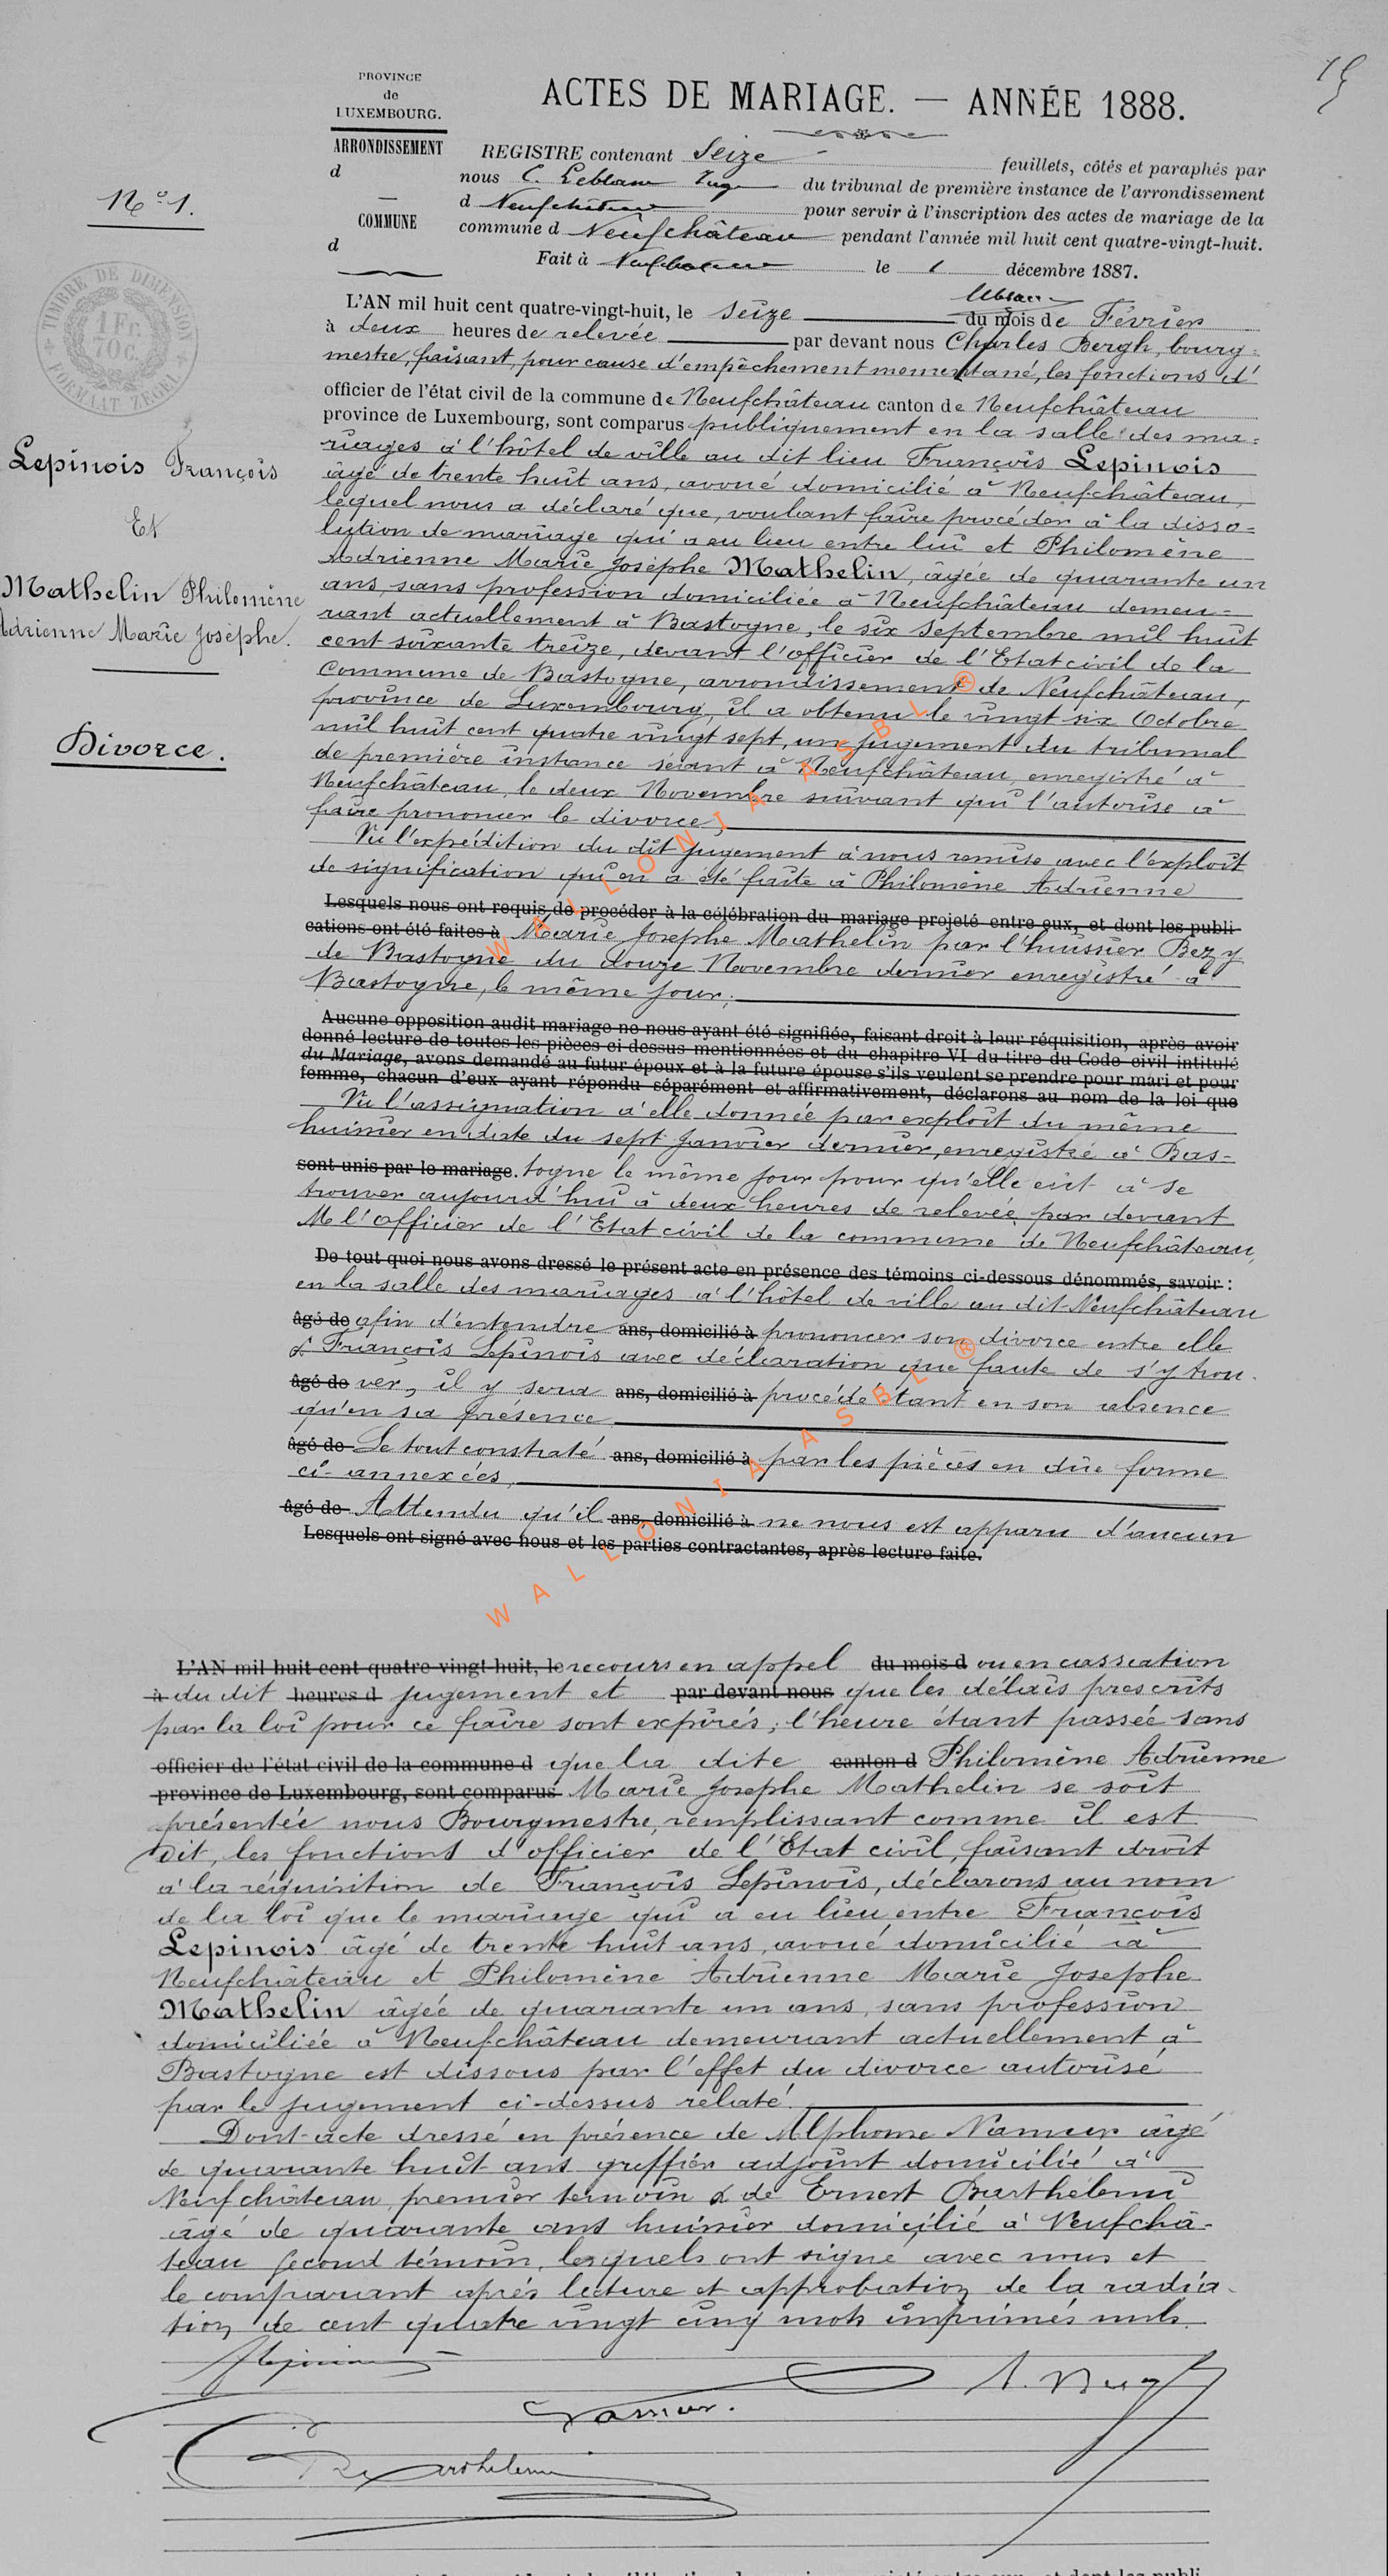 15
PROVINCE
de
LUXEMBOURG.
ARRONDISSEMENT
d
COMMUNE
d
ACTES DE MARIAGE. — ANNÉE 1888.
REGISTRE contenant Seize feuillets, côtés et paraphés par
nous C. Leblanc Juge du tribunal de première instance de l'arrondissement
d Neufchâteau pour servir à l'inscription des actes de mariage de la
commune d Neufchâteau pendant l'année mil huit cent quatre-vingt-huit.
Fait à Neufchateau le 1 décembre 1887.
Leblanc
No 1.
TIMBRE DE DIMENSION
1 Fr.
70 C.
FORMAAT ZEGEL
Lepinois François
Et
Mathelin Philomène
Adrienne Marie Josèphe.
Divorce.
L'AN mil huit cent quatre-vingt-huit, le seize du mois de Février
à deux heures de relevée par devant nous Charles Bergh, bourg=
mestre, faisant, pour cause d'empêchement momentané, les fonctions d'
officier de l'état civil de la commune de Neufchâteau canton de Neufchâteau
province de Luxembourg, sont comparus publiquement en la salle des ma=
riages à l'hôtel de ville au dit lieu François Lepinois
âgé de trente huit ans, avoué domicilié à Neufchâteau,
lequel nous a déclaré que, voulant faire procéder à la disso=
lution de mariage qui a eu lieu entre lui et Philomène
Adrienne Marie Josèphe Mathelin, âgée de quarante un
ans, sans profession domiciliée à Neufchâteau demeu=
rant actuellement à Bastogne, le six Septembre mil huit
cent soixante treize, devant l'officier de l'Etat civil de la
Commune de Bastogne, arrondissement de Neufchâteau,
province de Luxembourg, il a obtenu le vingt six Octobre
mil huit cent quatre vingt sept, un jugement du tribunal
de première instance séant à Neufchâteau, enregistré à
Neufchâteau, le deux Novembre suivant qui l'autorise à
faire prononcer le divorce;
Vu l'expédition du dit jugement à nous remise avec l'exploit
de signification qui en a été faite à Philomène Adrienne
Lesquels nous ont requis de procéder à la célébration du mariage projeté entre eux, et dont les publi-
cations ont été faites à Marie Josephe Mathelin par l'huissier Bezy
de Bastogne du douze Novembre dernier enregistré à
Bastogne, le même jour;
Aucune opposition audit mariage ne nous ayant été signifiée, faisant droit à leur réquisition, après avoir
donné lecture de toutes les pièces ci-dessus mentionnées et du chapitre VI du titre du Code civil intitulé
du Mariage, avons demandé au futur époux et à la future épouse s'ils veulent se prendre pour mari et pour
femme, chacun d'eux ayant répondu séparément et affirmativement, déclarons au nom de la loi que
Vu l'assignation à elle donnée par exploit du même
huissier en date du sept Janvier dernier, enregistré à Bas-
sont unis par le mariage. togne le même jour pour qu'elle eût à se
trouver aujourd'hui à deux heures de relevée par devant
M l'officier de l'Etat civil de la commune de Neufchâteau,
De tout quoi nous avons dressé le présent acte en présence des témoins ci-dessous dénommés, savoir :
en la salle des mariages à l'hôtel de ville au dit Neufchâteau
âgé de afin d'entendre ans, domicilié à prononcer son divorce entre elle
& François Lepinois avec déclaration que faute de s'y trou-
âgé de ver, il y sera ans, domicilié à procédé tant en son absence
qu'en sa présence
âgé de Le tout constaté ans, domicilié à par les pièces en dûe forme
ci-annexées,
âgé de Attendu qu'il ans, domicilié à ne nous est apparu d'aucun
Lesquels ont signé avec nous et les parties contractantes, après lecture faite.
WALLONIA ASBL ®
WALLONIA ASBL ®
L'AN mil huit cent quatre-vingt-huit, le recours en appel du mois d ou en cassation
à du dit heures d jugement et par devant nous que les délais prescrits
par la loi pour ce faire sont expirés; l'heure étant passée sans
officier de l'état civil de la commune d que la dite canton d Philomène Adrienne
province de Luxembourg, sont comparus Marie Josephe Mathelin se soit
présentée nous Bourgmestre, remplissant comme il est
dit, les fonctions d'officier de l'Etat civil, faisant droit
à la réquisition de François Lepinois, déclarons au nom
de la loi que le mariage qui a eu lieu entre François
Lepinois âgé de trente huit ans, avoué domicilié à
Neufchâteau et Philomène Adrienne Marie Josephe
Mathelin âgée de quarante un ans, sans profession
domiciliée à Neufchâteau demeurant actuellement à
Bastogne est dissous par l'effet du divorce autorisé
par le jugement ci-dessus relaté.
Dont-acte dressé en présence de Alphonse Namur âgé
de quarante huit ans greffier adjoint domicilié à
Neufchâteau, premier temoin & de Ernest Barthélemi
âgé de quarante ans huissier domicilié à Neufchâ-
teau second témoin, lesquels ont signé avec nous et
le comparant après lecture et approbation de la radia-
tion de cent quatre vingt cinq mots imprimés nuls.
Namur.
Barthelemi